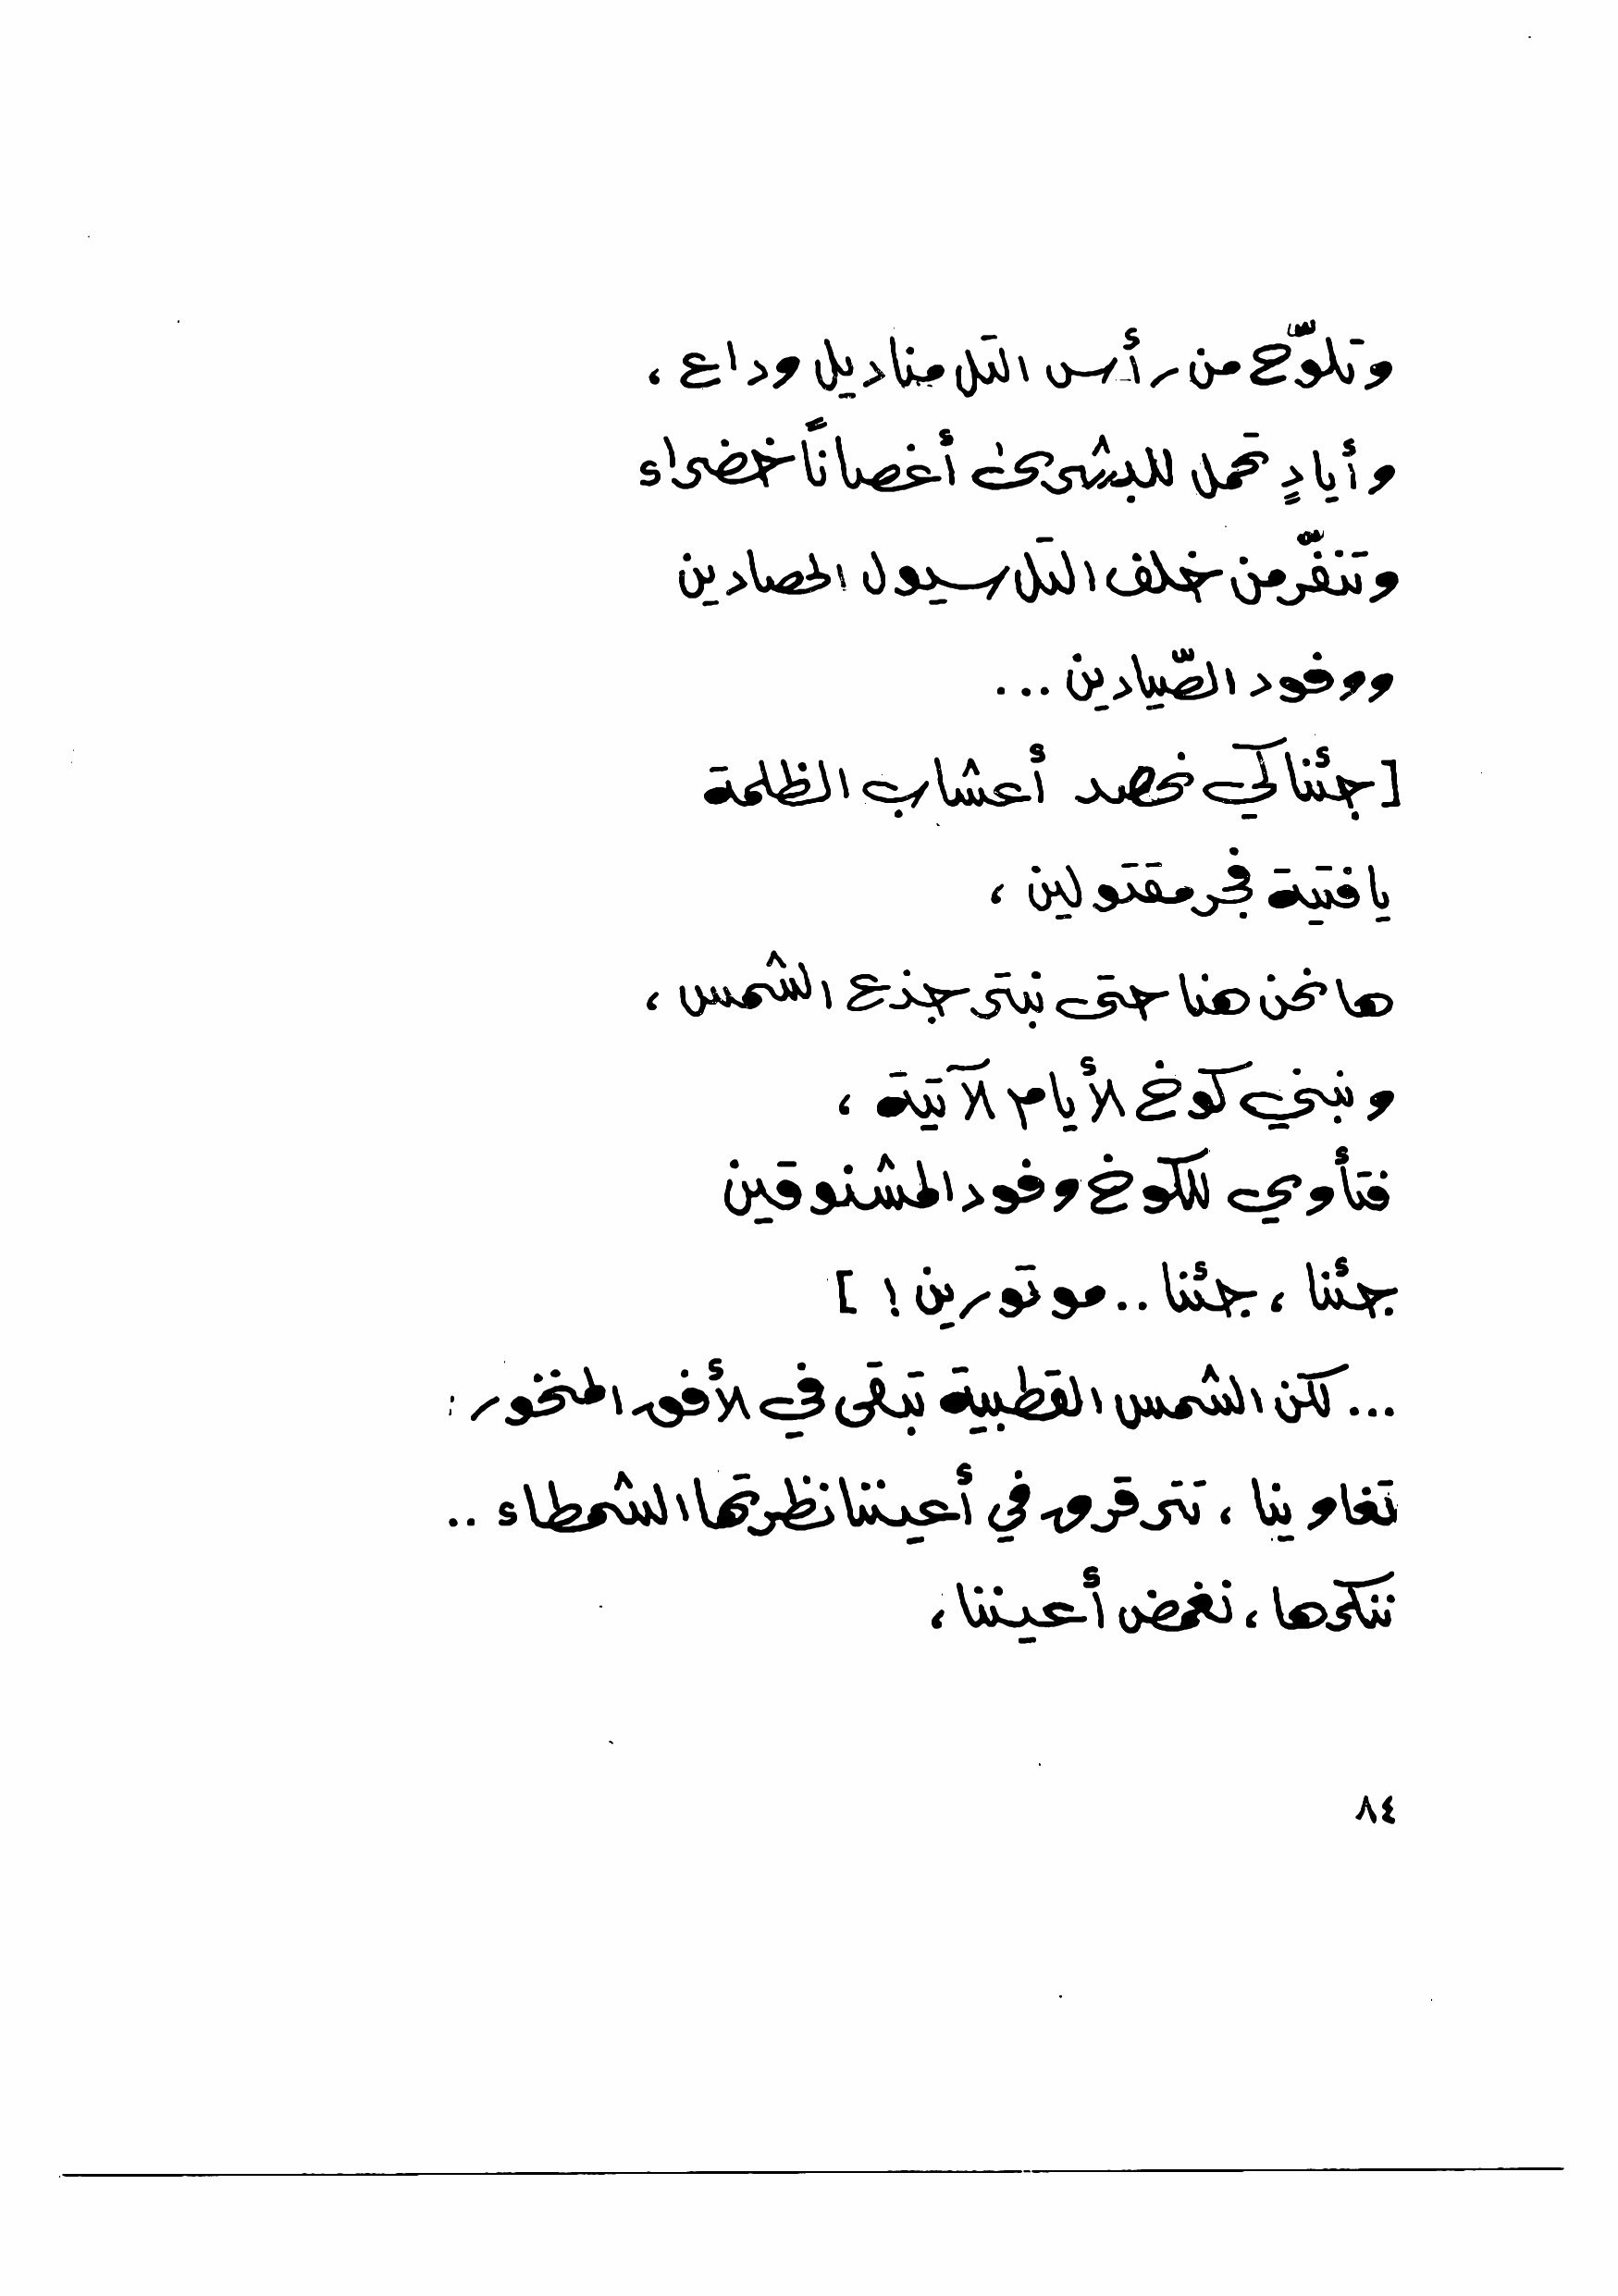 وتلوّح من رأس التل مناديل وداع ،
وأيادٍ تحمل للبشرى أغصاناً خضراء
وتنفّر من خلف التل سيول الحصادين
ووفود الصّيادين ...
[ جئنا كي نحصد أعشاب الظلمة
يا فتية فجر مقتولين ،
ها نحن هنا حتى نبتر جذع الشمس ،
ونبني كوخ الأيام الآتية ،
فتأوي للكوخ وفود المشنوقين
جئنا ، جئنا .. موتورين ! ]
... لكن الشمس القطبية تبقى في الأفق المنخور :
تغاوينا ، تترقرق في أعيننا نظرتها الشمطاء ..
ننكرها ، نغمض أعيننا ،
٨٤